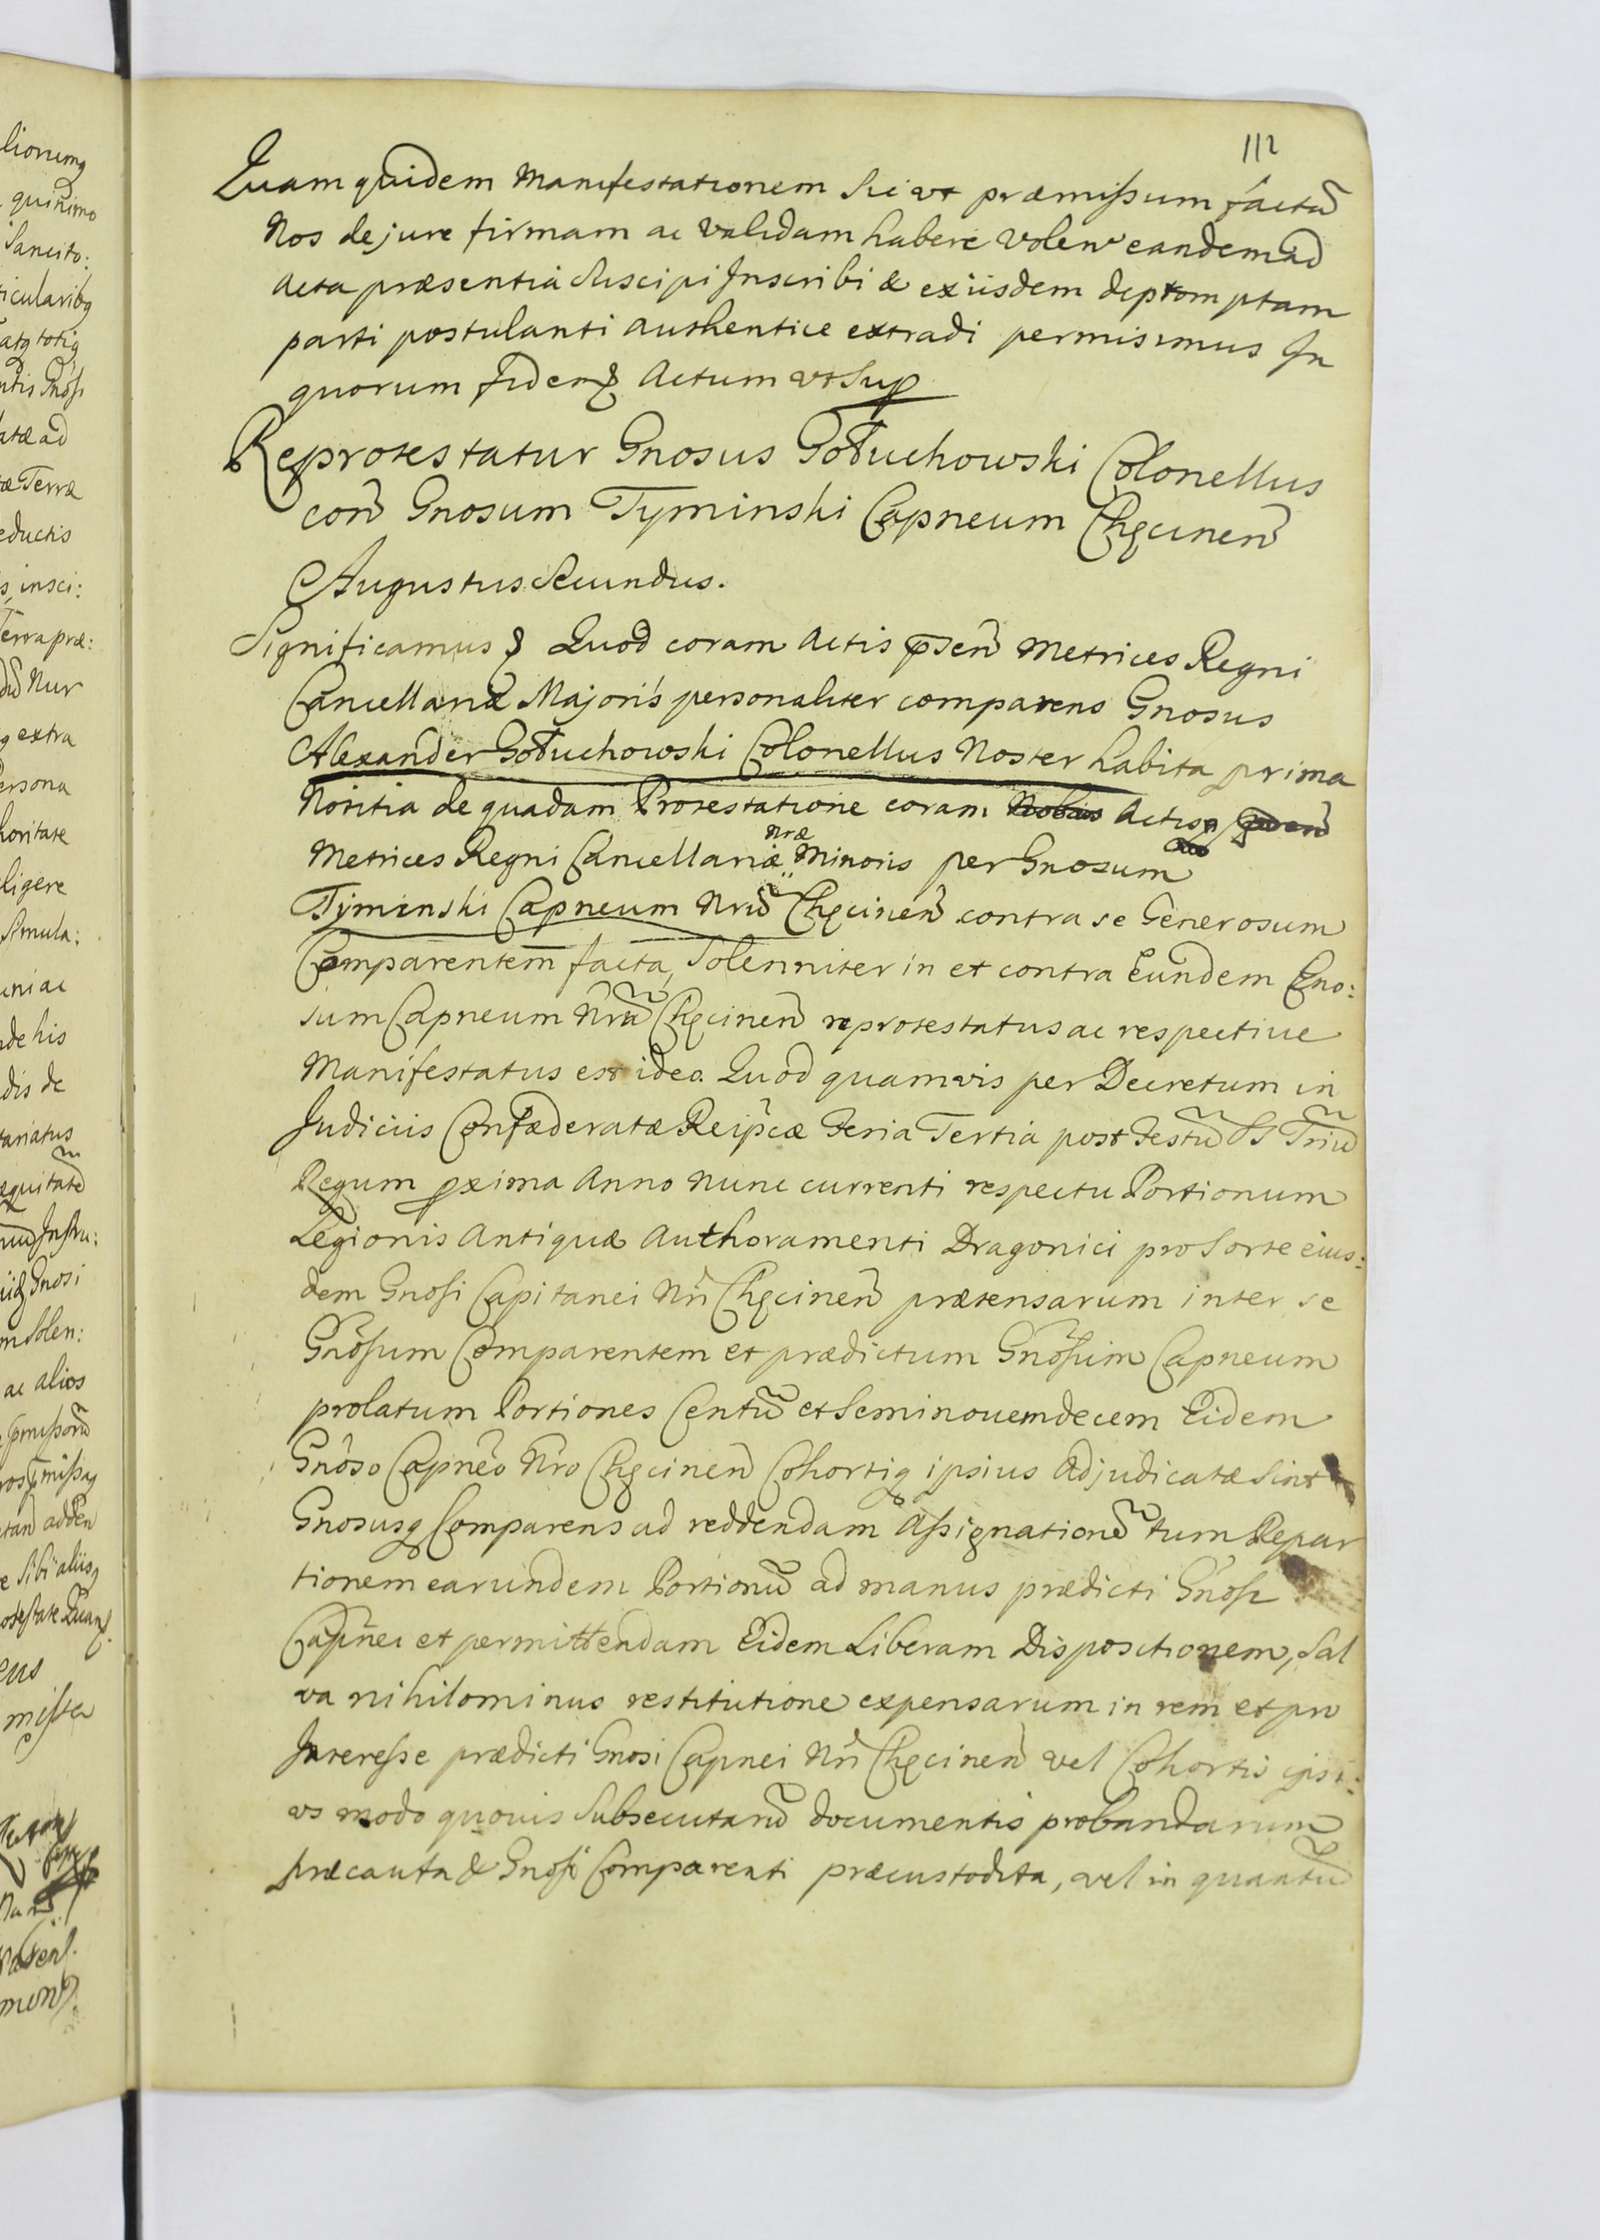 112
Quam quidem Manifestationem Sic ut præmissum factã
Nos de jure firmam ac validam habere volen͠ eandem ad
Acta præsentia Suscipi Inscribi & ex iisdem deptom ptam
parti postulanti authentice extradi permisimus In
quorum fidem & Actum ut Sup
Reprotestatur Gnosus Gołuchowski Colonellus
con͠ Gnosum Tyminski Capneum Chęcinen͠
Augustus Secundus.
Significamus & Quod coram Actis p͠sen͠ Metrices Regni
Cancellariæ Majoris personaliter comparens Gnosus
Alexander Gołuchowski Colonellus Noster habita prima
Notitia de quadam Protestatione coram Nobis Actis
Metrices Regni Cancellariæ Nræ Minoris per Gnosum
Tyminski Capneum Nrũ Chęcinen͠ contra se Generosum
Comparentem facta, Solenniter in et contra Eundem Gno:
sum Capneum Nrũ Chęcinen͠ reprotestatus ac respective
Manifestatus est ideo. Quod quamvis per Decretum in
Judiciis Confæderatæ Reipcæ Feria Tertia post Festũ SS Triũ
Regum p͠xima Anno Nunc currenti respectu Portionum
Legionis Antiquæ Authoramenti Dragonici pro Sorte eius:
dem Gnosi Capitanei Nri Chęcinen͠ prætensarum inter se
Gnosum Comparentem et prædictum Gnosum Capneum
prolatum Portiones Centũ et Seminovemdecem Eidem
Gnoso Capneo Nro Chęcinen͠ Cohortiq ipsius Adjudicatæ Sint
Gnosusq Comparens ad reddendam Assignationẽ tum Repar
tionem earundem Portionũ ad manus prædicti Gnosi
Capnei et permittendam Eidem Liberam Dispositionem, Sal
va nihilominus restitutione expensarum in rem et pro
Interesse prædicti Gnosi Capnei Nri Chęcinen͠ vel Cohortis ipsi:
us modo quovis Subsecutarũ documentis probandarum
præcauta & Gnosi Comparenti præcustodita, vel in quantũ